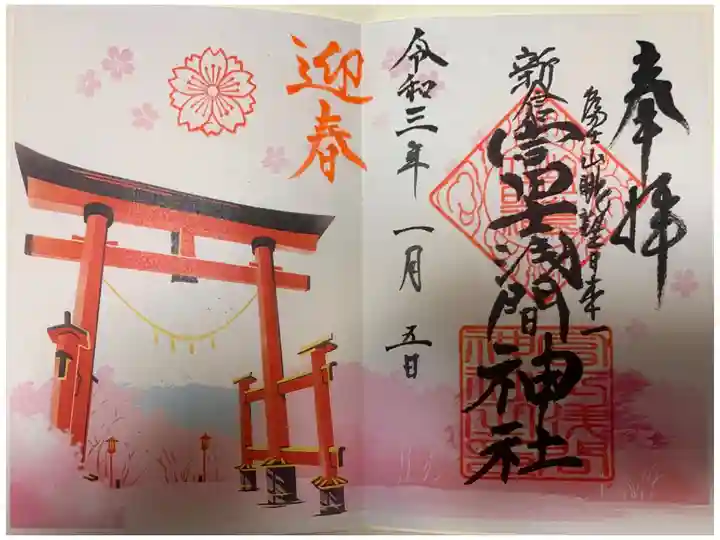 奉拝
富士山眺望日本一
新倉富士浅間神社
令和三年一月五日
迎春